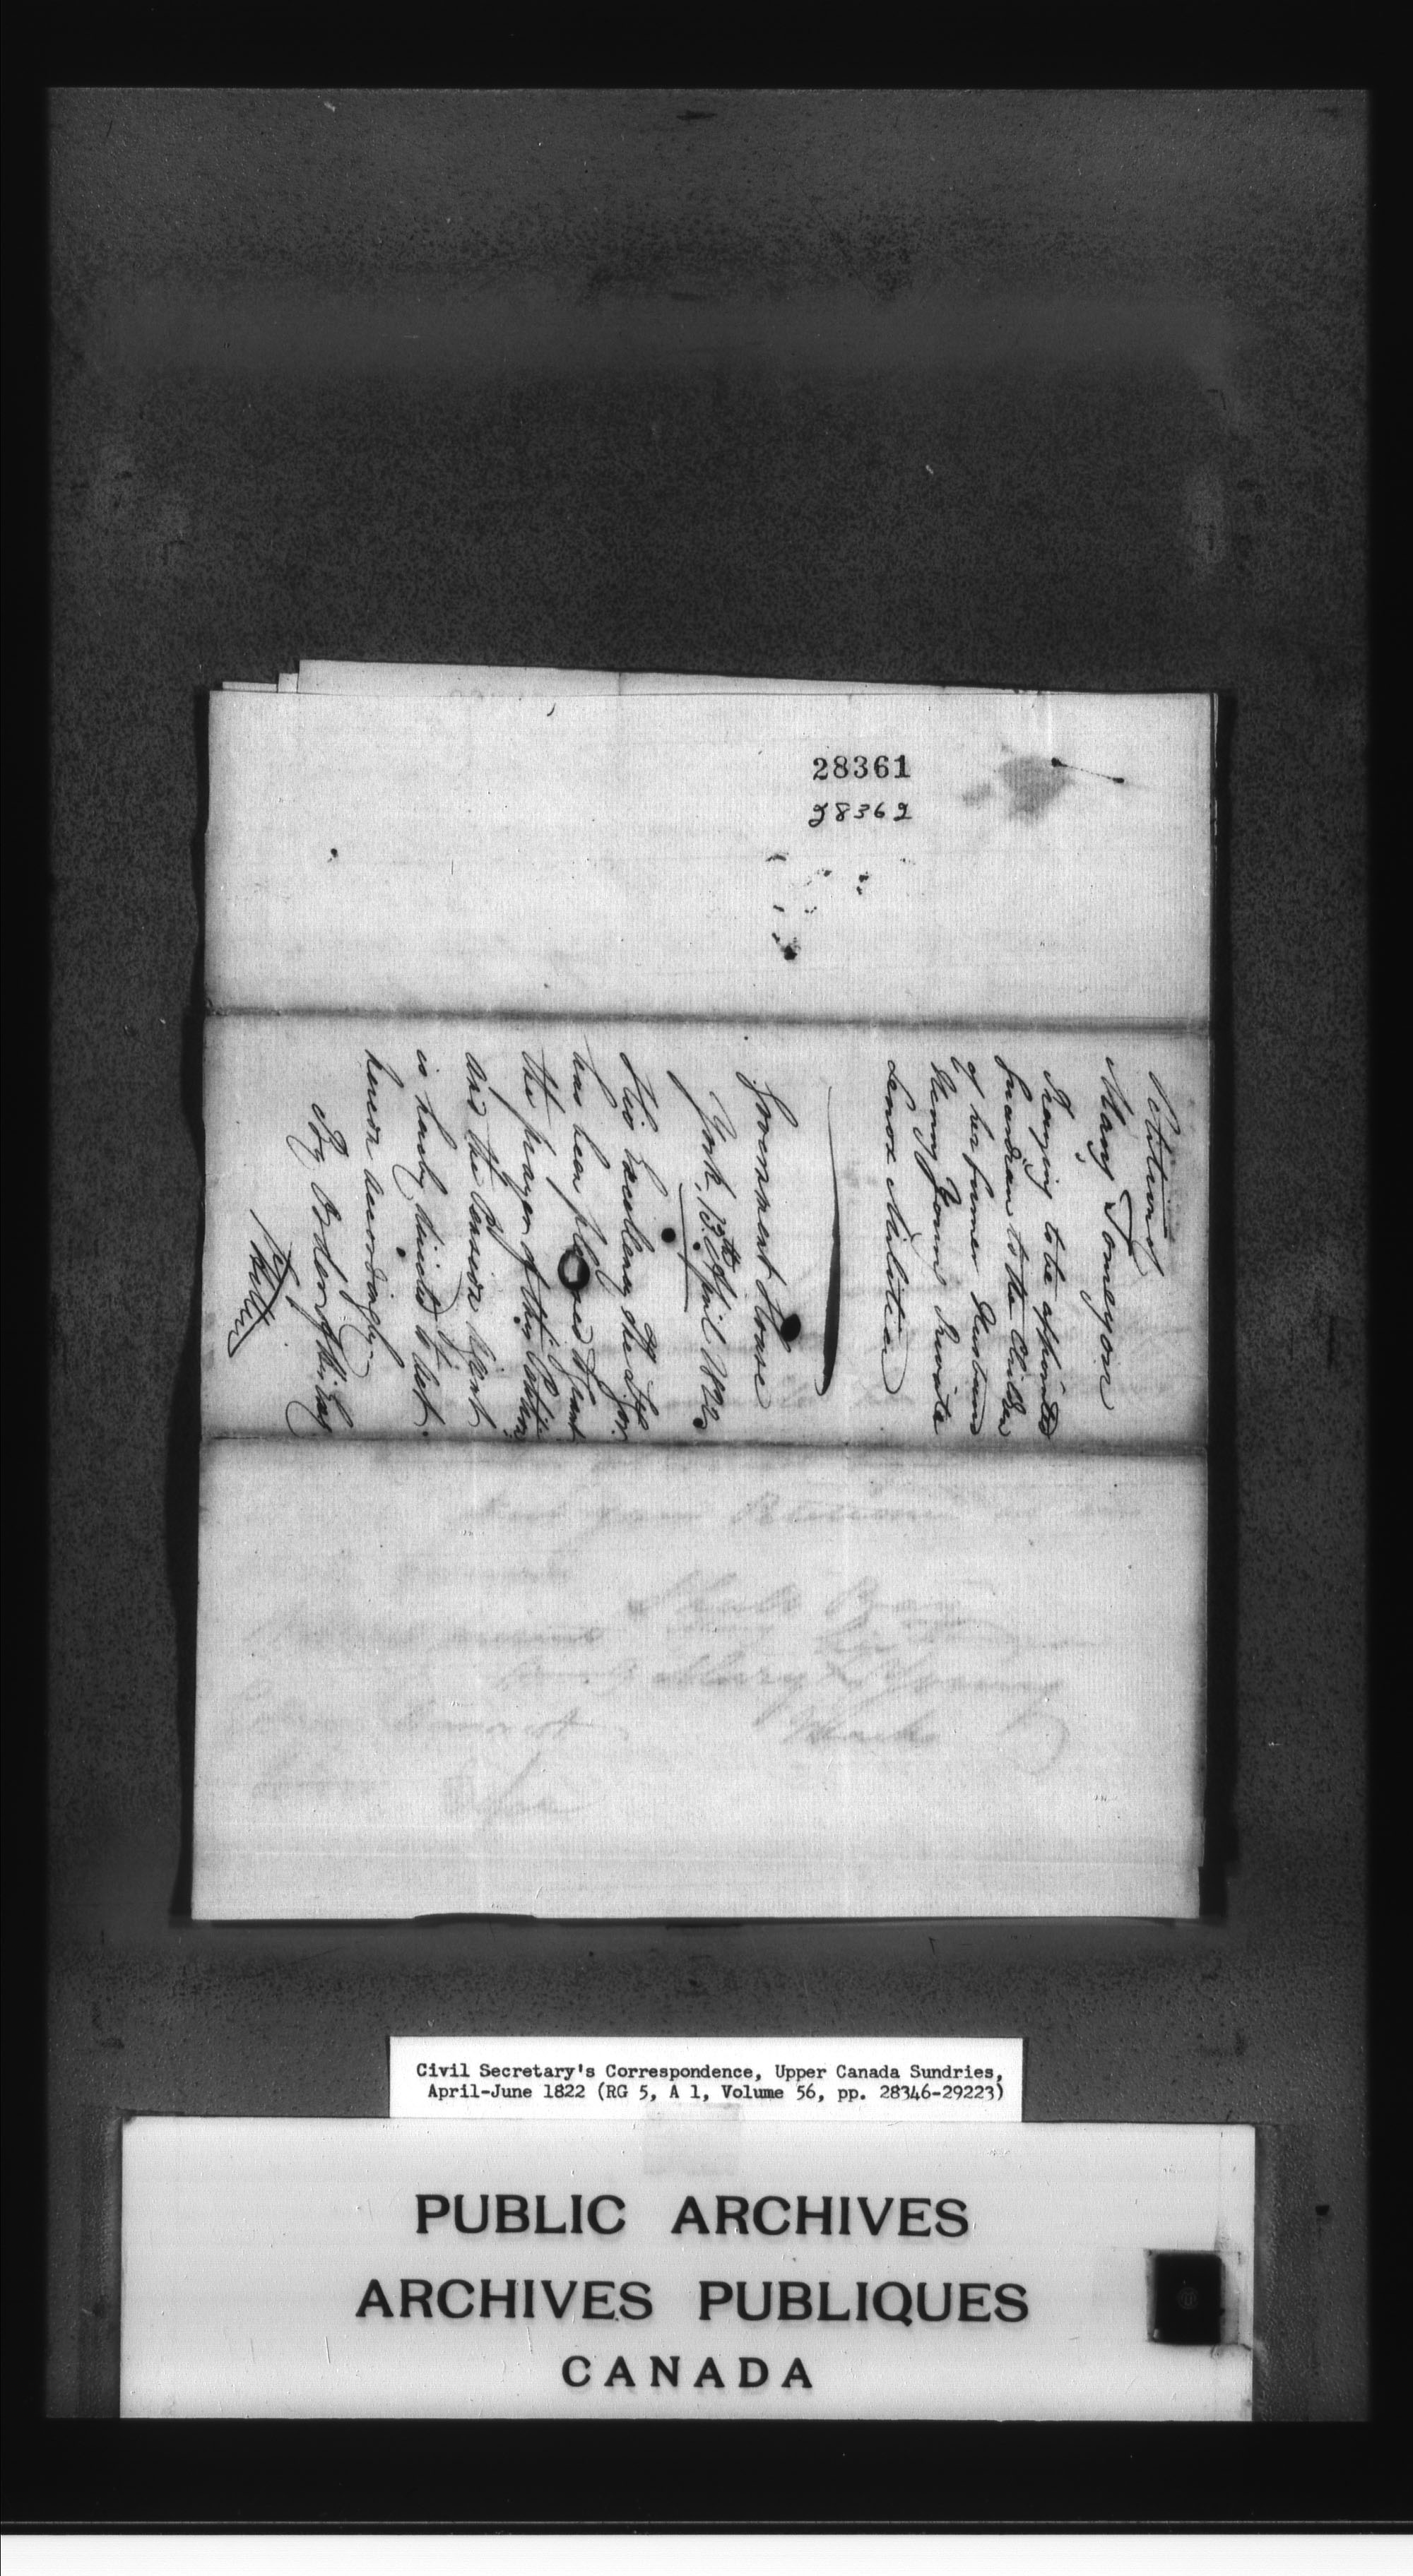 28361
28362
Petition of
Mary Tomeyon
Praying to be appointed
Guardian to the Children
of her former Husband
Henry Young Private
Lenox Militia
Government House
York, 13th April 1822
His Excellency the Lt. Gov.
has been pleased to grant
the prayer of this Petition
and the Pension Agent
is hereby directed to act
hereon accordingly.
By Order of
Civil Secretary's Correspondence, Upper Canada Sundries,
April-June 1822 (RG 5, A 1, Volume 56, pp. 28346-29223)
PUBLIC ARCHIVES
ARCHIVES PUBLIQUES
CANADA